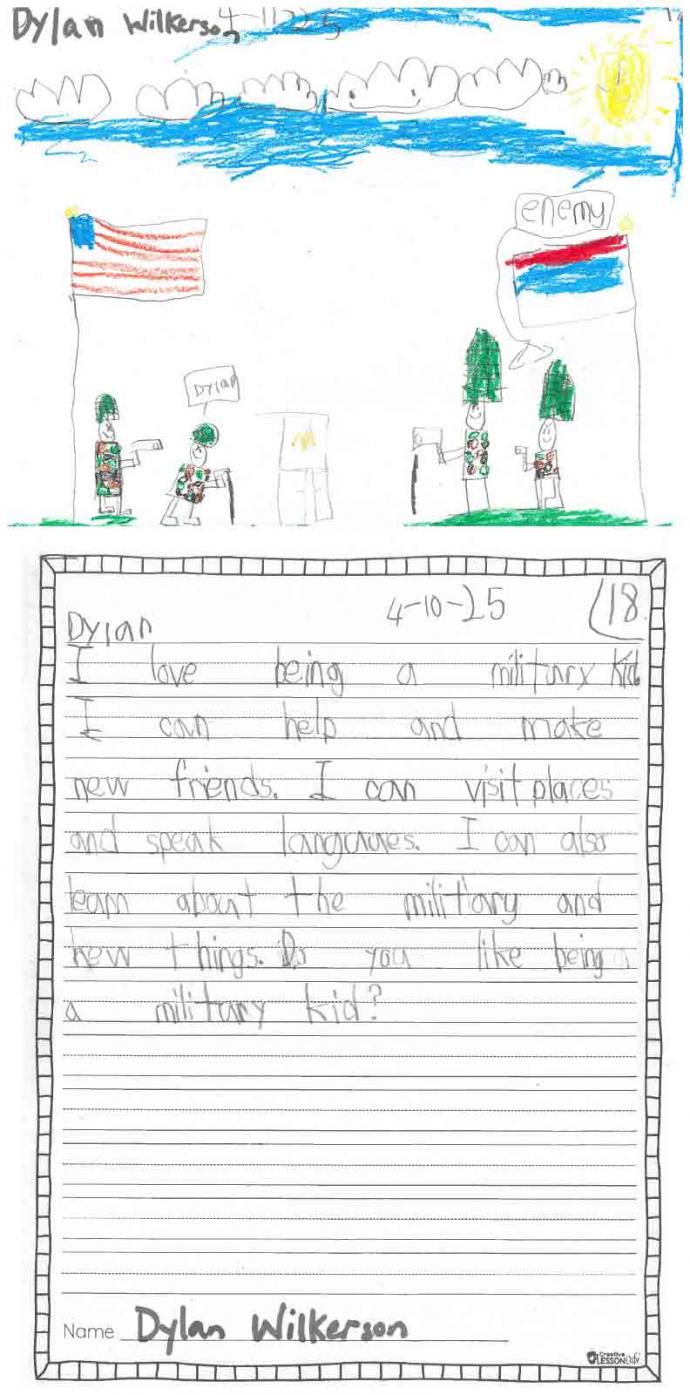 Dylan Wilkerson 4-11-25
enemy
Dylan
Dylan 4-10-25 18
I love being a military kid.
I can help and make
new friends. I can visit places
and speak langauues. I can also
learn about the military and
new things. Do you like being
a military kid?
Name Dylan Wilkerson
Creative
LESSON Cafe